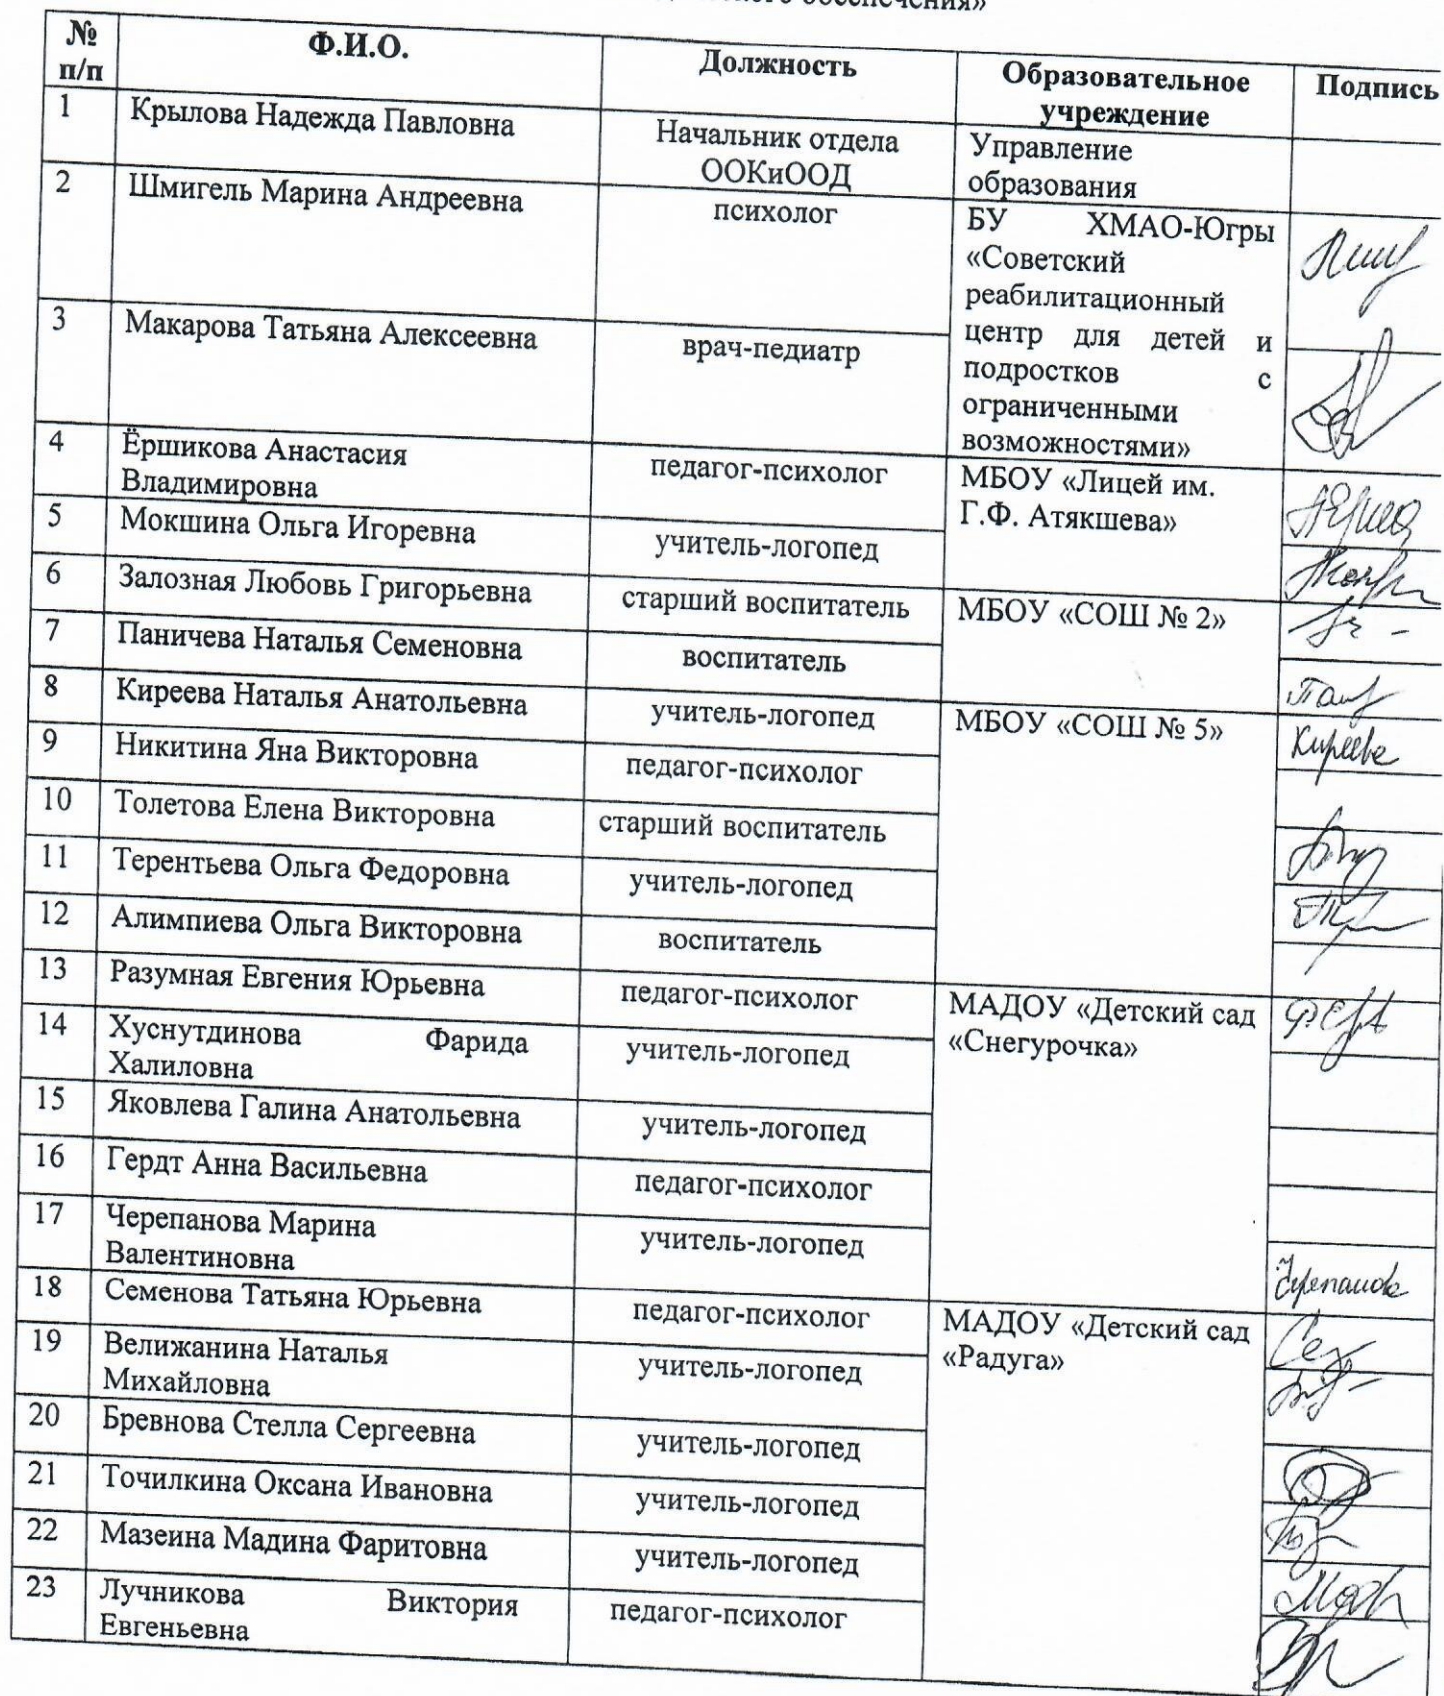 обеспечения»
№ Ф.И.О. Должность Образовательное Подпись
п/п учреждение
1 Крылова Надежда Павловна Начальник отдела Управление
ООКиООД образования
2 Шмигель Марина Андреевна психолог БУ ХМАО-Югры
«Советский
реабилитационный
3 Макарова Татьяна Алексеевна врач-педиатр центр для детей и
подростков с
ограниченными
возможностями»
4 Ёршикова Анастасия педагог-психолог МБОУ «Лицей им.
Владимировна Г.Ф. Атякшева»
5 Мокшина Ольга Игоревна учитель-логопед
6 Залозная Любовь Григорьевна старший воспитатель МБОУ «СОШ № 2»
7 Паничева Наталья Семеновна воспитатель
8 Киреева Наталья Анатольевна учитель-логопед МБОУ «СОШ № 5» Киреева
9 Никитина Яна Викторовна педагог-психолог
10 Толетова Елена Викторовна старший воспитатель
11 Терентьева Ольга Федоровна учитель-логопед
12 Алимпиева Ольга Викторовна воспитатель
13 Разумная Евгения Юрьевна педагог-психолог МАДОУ «Детский сад
«Снегурочка»
14 Хуснутдинова Фарида учитель-логопед
Халиловна
15 Яковлева Галина Анатольевна учитель-логопед
16 Гердт Анна Васильевна педагог-психолог
17 Черепанова Марина учитель-логопед Черепанова
Валентиновна
18 Семенова Татьяна Юрьевна педагог-психолог МАДОУ «Детский сад
«Радуга»
19 Велижанина Наталья учитель-логопед
Михайловна
20 Бревнова Стелла Сергеевна учитель-логопед
21 Точилкина Оксана Ивановна учитель-логопед
22 Мазеина Мадина Фаритовна учитель-логопед
23 Лучникова Виктория педагог-психолог
Евгеньевна